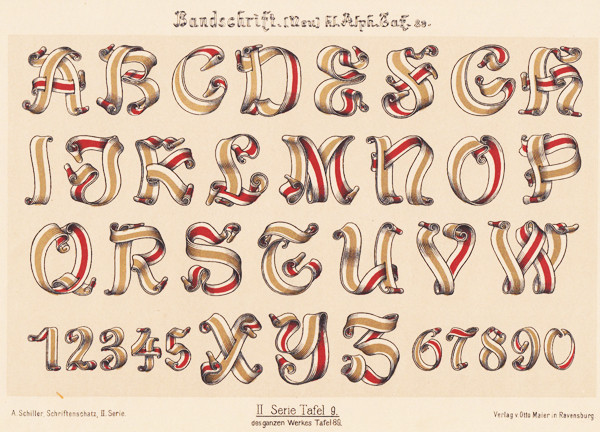 Bandschrift. [Neu] Alph. Taf.
A B C D E F G H
I J K L M N O P
Q R S T U V W
1 2 3 4 5 X Y Z 6 7 8 9 0
A. Schiller, Schriftenschatz, II. Serie.
II Serie Tafel 9.
des ganzen Werkes Tafel 89.
Verlag v. Otto Maier in Ravensburg